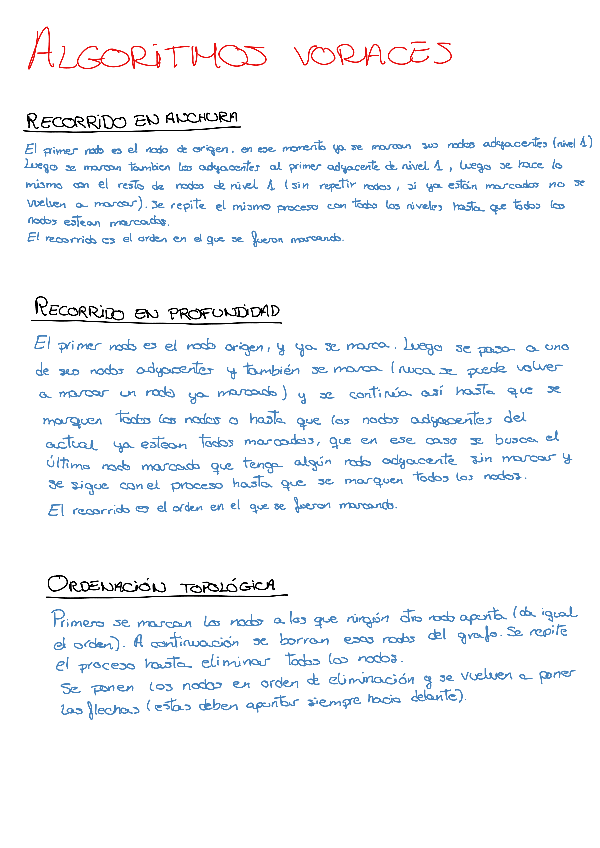 ALGORITMOS VORACES
RECORRIDO EN ANCHURA
El primer nodo es el nodo de origen. en ese momento ya se marcan sus nodos adyacentes (nivel 1)
Luego se marcan tambien los adyacentes al primer adyacente de nivel 1, luego se hace lo
mismo con el resto de nodos de nivel 1 (sin repetir nodos, si ya están marcados no se
vuelven a marcar). Se repite el mismo proceso con todos los niveles hasta que todos los
nodos estean marcados.
El recorrido es el orden en el que se fueron marcando.
RECORRIDO EN PROFUNDIDAD
El primer nodo es el nodo origen, y ya se marca. Luego se pasa a uno
de sus nodos adyacentes y también se marca (nuca se puede volver
a marcar un nodo ya marcado) y se continúa así hasta que se
marquen todos los nodos o hasta que los nodos adyacentes del
actual ya estean todos marcados, que en ese caso se busca el
último nodo marcado que tenga algún nodo adyacente sin marcar y
se sigue con el proceso hasta que se marquen todos los nodos.
El recorrido es el orden en el que se fueron marcando.
ORDENACIÓN TOPOLÓGICA
Primero se marcan los nodos a los que ningún otro nodo apunta (da igual
el orden). A continuación se borran esos nodos del grafo. Se repite
el proceso hasta eliminar todos los nodos.
Se ponen los nodos en orden de eliminación y se vuelven a poner
las flechas (estas deben apuntar siempre hacia delante).